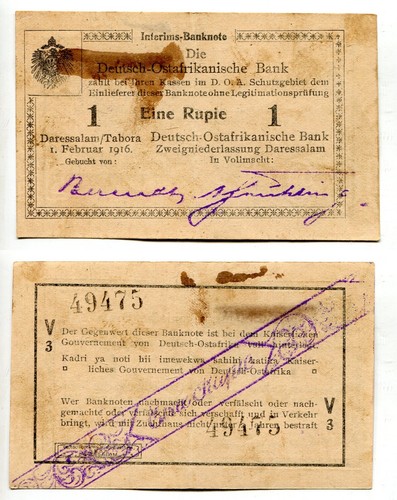 Interims-Banknote
Die
Deutsch-Ostafrikanische Bank
zahlt bei ihren Kassen im D. O. A. Schutzgebiet dem
Einlieferer dieser Banknote ohne Legitimationsprüfung
1 Eine Rupie 1
Daressalam/Tabora Deutsch-Ostafrikanische Bank
1. Februar 1916. Zweigniederlassung Daressalam
Gebucht von: In Vollmacht:
49475
V
3
Der Gegenwert dieser Banknote ist bei dem Kaiserlichen
Gouvernement von Deutsch-Ostafrika voll hinterlegt
Kadri ya noti hii imewekwa sahihi katika Kaiser-
liches Gouvernement von Deutsch-Ostafrika
Wer Banknoten nachmacht oder verfälscht oder nach-
gemachte oder verfälschte sich verschafft und in Verkehr
bringt, wird mit Zuchthaus nicht unter 2 Jahren bestraft
V
3
49475